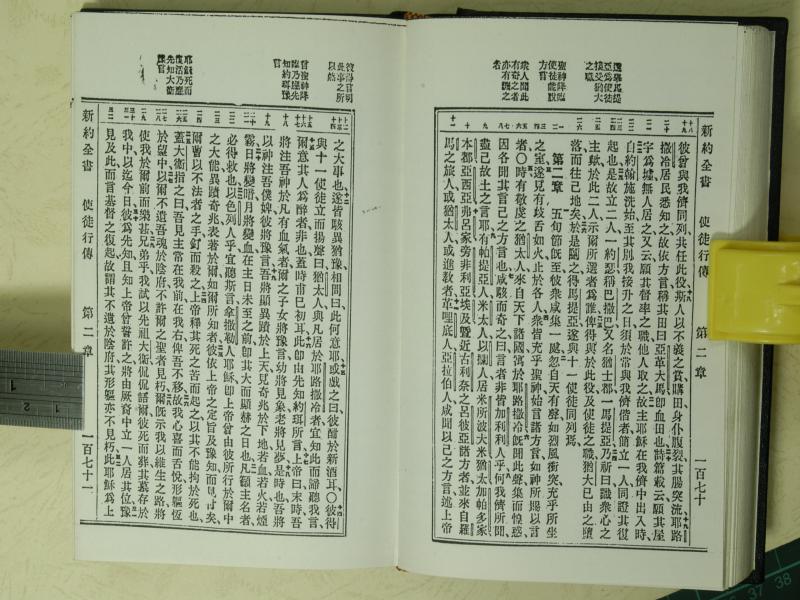 新約全書 使徒行傳 第二章 一百七十
選舉馬提
亞爲使徒
接受猶大
之職
聖神降
使徒能說
方言
衆人聞此
有奇之者
亦有譏之
者
彼曾與我儕同列共任此役、斯人以不義之貲購田身仆腹裂其腸突流耶路
撒冷居民悉知之故依方言稱其田曰亞革大馬卽血田也詩篇載云願其屋
字爲墟無人居之又云願其督率之職他人取之故主耶穌在我儕中出入時
自約翰施洗始至其別我接升之日須於常與我儕偕者簡立一人同證其復
起也是故立二人一約瑟稱巴撒巴又名猶士都一馬提亞乃祈曰識衆心之
主歟於此二人示爾所選者爲誰俾得與於此役及使徒之職猶大已由之墮
而往己地矣於是鬮之得馬提亞遂與十一使徒同列焉
第二章 五旬節旣至彼衆咸集一處忽自天有聲如烈風衝突充乎所坐
之室遂見有歧舌如火止於各人衆皆充乎聖神始言諸方言如神所賜以言
者〇時有敬虔之猶太人來自天下諸國寓於耶路撒冷旣聞此聲集而惶惑
因各聞其言己之方言也咸駭而奇之曰言者非皆加利利人乎何我儕所聞
盡己故土之言耶有帕提亞人米太人以攔人居米所波大米猶太加帕多家
本都亞西亞弗呂家旁非利亞埃及曁近古利奈之呂彼亞諸方者並來自羅
馬之旅人或猶太人或進敎者革哩底人亞拉伯人咸聞以己之方言述上帝
彼得自明
此事之所
以然
曾聖神降
臨乃應先
知約珥豫
言
耶穌死而
復活乃應
先知大衛
豫言
之大事也遂皆駭異猶豫相問曰此何意耶或戲之曰彼酣於新酒耳〇彼得
與十一使徒立而揚聲曰猶太人與凡居於耶路撒冷者宜知此而歸聽我言
爾意其人爲醉者非也蓋時甫巳初耳此卽由先知約珥所言上帝曰末時吾
將注吾神於凡有血氣者爾之子女將豫言幼將見象老將見夢是時也吾將
以神注吾僕婢彼將豫言吾將顯異蹟於上天見奇兆於下地若血若火若煙
霧日將變暗月將變血在主日未至之前卽其大而顯赫之日也凡籲主名者
必得救也以色列人乎宜聽斯言拿撒勒人耶穌卽上帝曾由彼所行於爾中
之大能異蹟奇兆表著於爾如爾所知者彼依上帝之定旨及豫知而見付矣
爾曹以不法者之手釘而殺之上帝釋其死之苦而起之以其不能拘於死也
蓋大衛指之曰吾見主常在我前在我右俾吾不移故我心喜而舌悅形軀恆
於望中以爾不遺吾魂於陰府不許爾之聖者見朽爾旣示我以維生之路將
使我於爾前而樂甚兄弟乎我試以先祖大衛侃侃語爾彼死而葬其墓存於
我中以迄今日彼爲先知且知上帝曾誓許之將由厥裔中立一人居其位豫
見及此而言基督之復起故謂其不遺於陰府其形軀亦不見朽此耶穌爲上
新約全書 使徒行傳 第二章 一百七十一